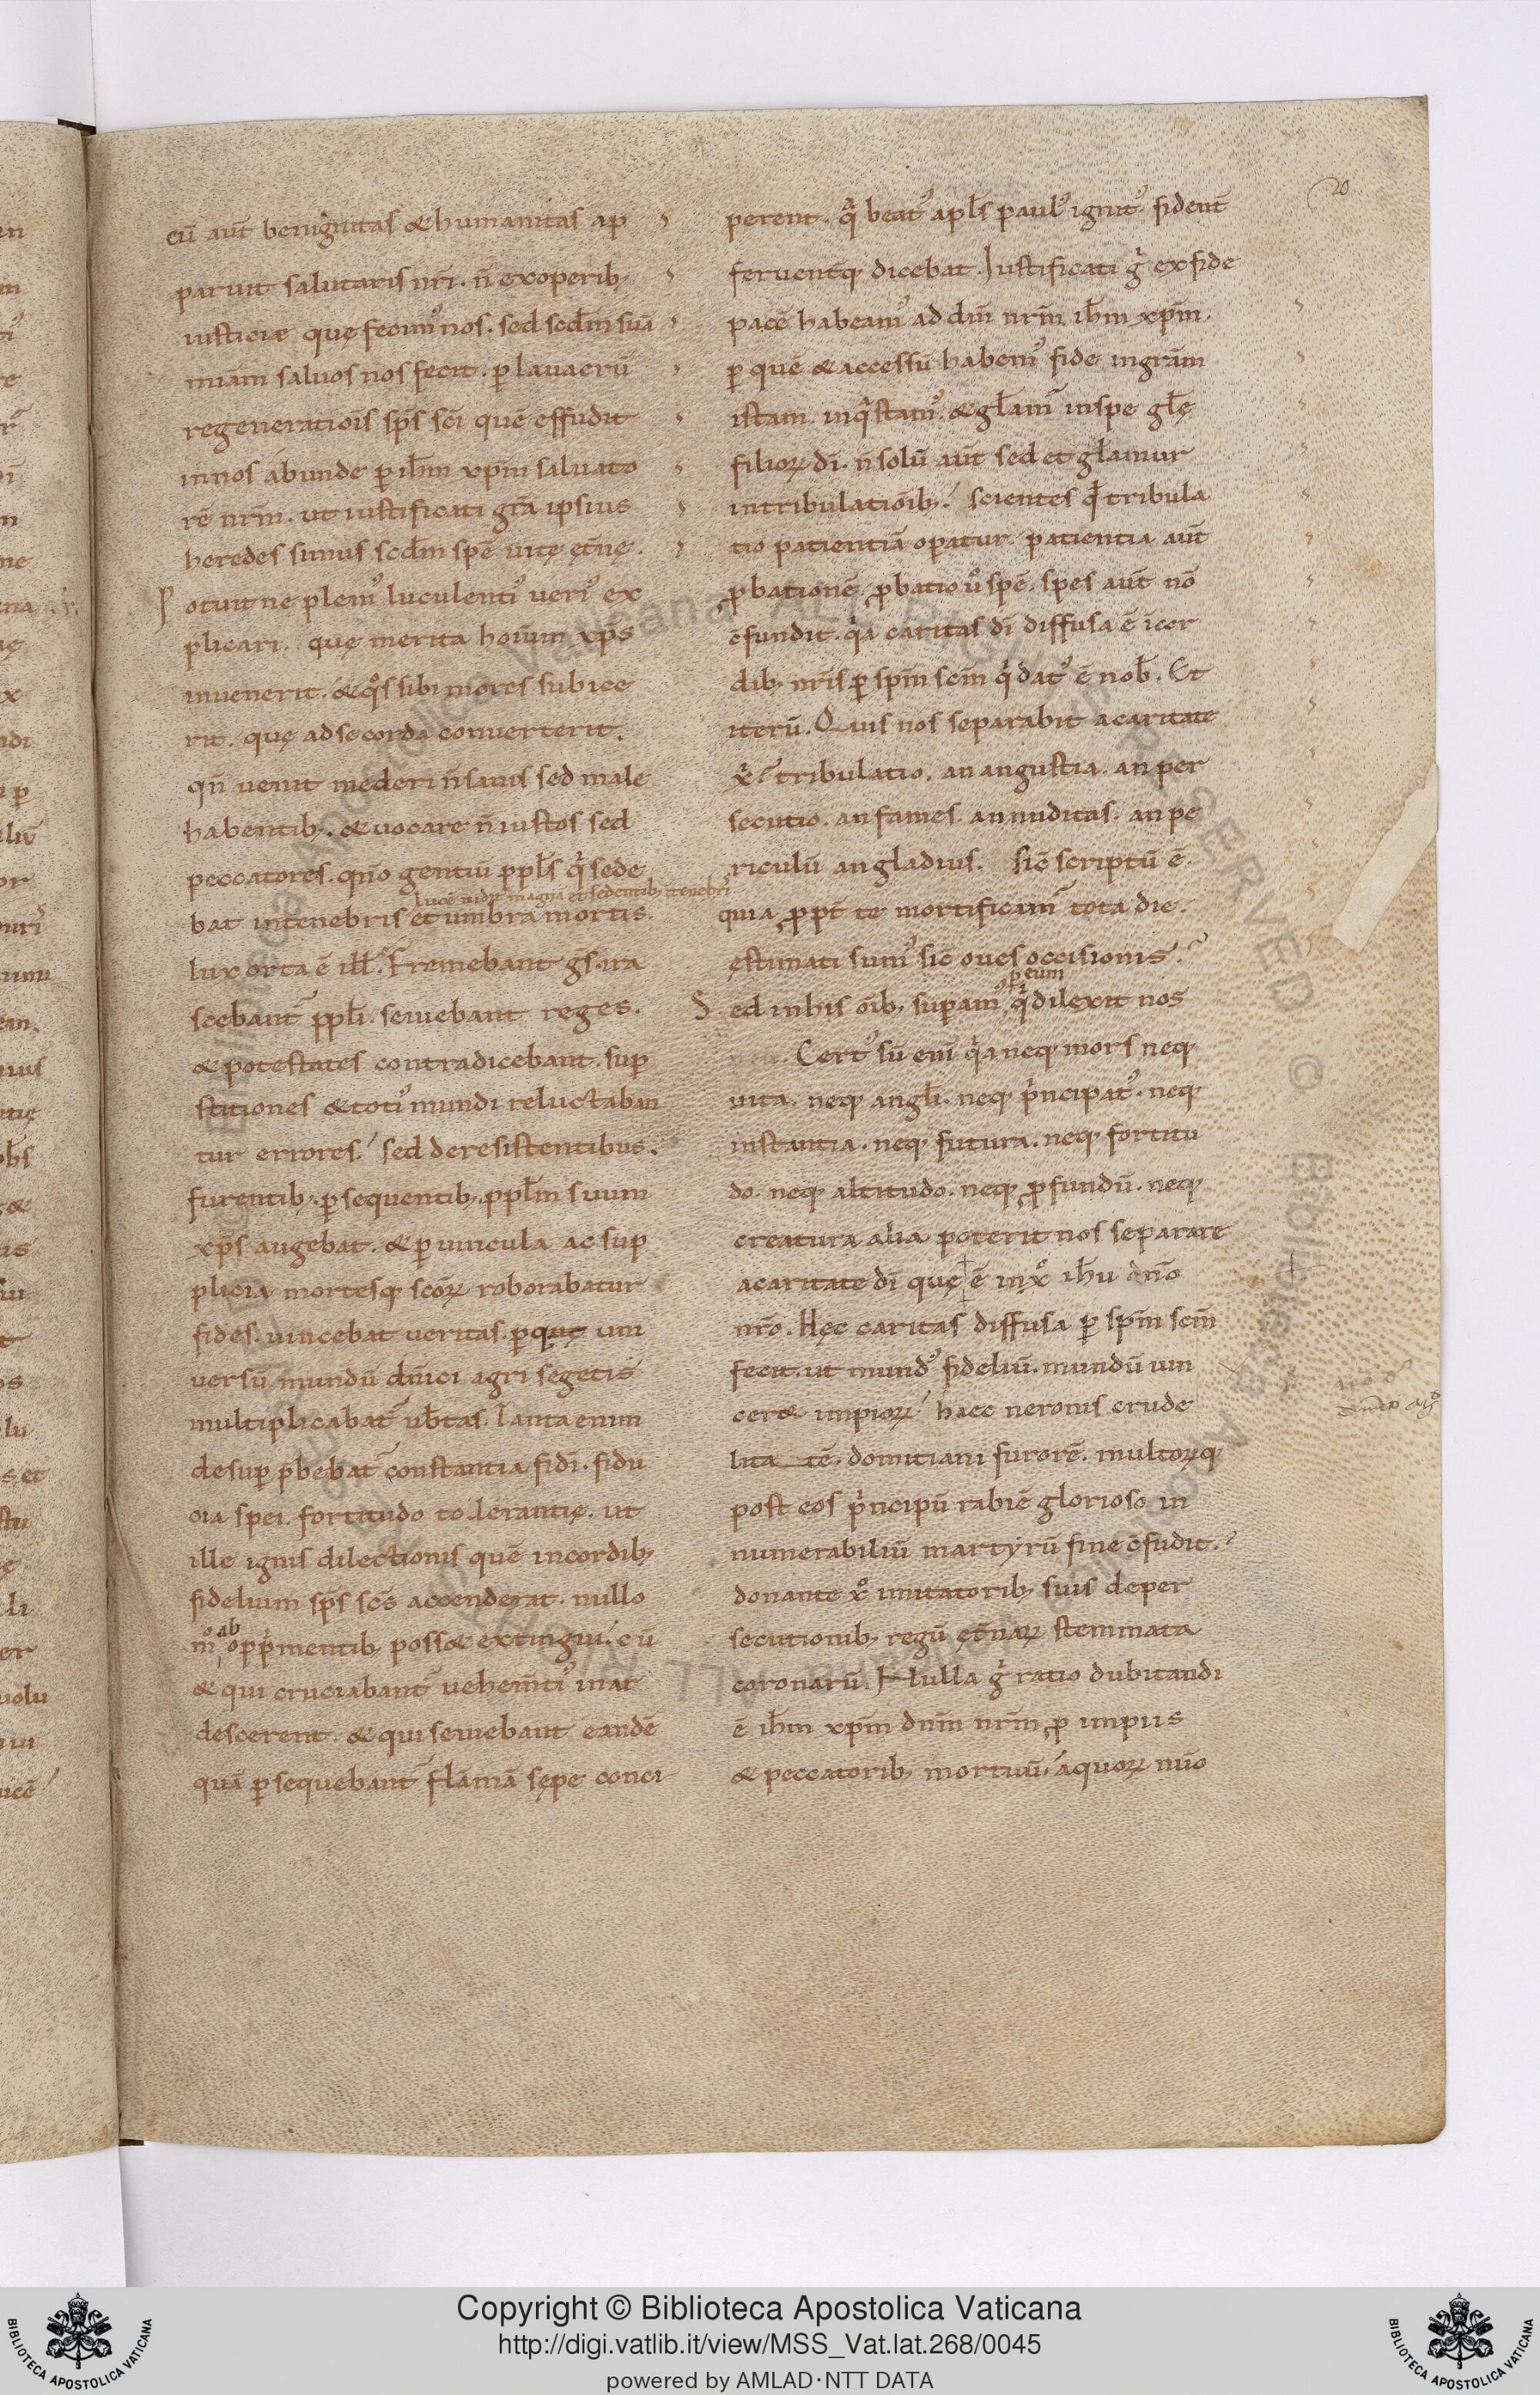 20
cū aūt benignitas & humanitas ap
paruit salutaris nr̄i. n̄ exoperib;
iusticiæ quę fecimꝰ nos. sed scd̄m suā
mīam saluos nos fecit. ꝑ lauacrū
regeneratiōis sp̄s sc̄i quē effudit
innos abunde ꝑ ih̄m xp̄m saluato
rē nr̄m. ut iustificati gr̄a ipsius
heredes simus scd̄m spē uitę ęt̄nę.
Potuit ne pleniꝰ luculentiꝰ ueriꝰ ex
plicari. quę merita hoīum xp̄s
inuenerit. & qͦs sibi mores subice
rit. quę adse corda conuerterit.
qn̄ uenit mederi n̄ sanis sed male
habentib;. & uocare n̄ iustos sed
peccatores. qn̄o gentiū ppl̄s qͥ sede
lucē uidit magnā et sedentib; ītenebris
bat intenebris et umbra mortis.
lux orta ē ill̄. Fremebant gs̄. ira
scebant᷑ ppl̄i. seuiebant reges.
& potestates contradicebant. suꝑ
stitiones & totiꝰ mundi reluctaban
tur errores. sed deresistentibus.
furentib;. ꝑsequentib;. ppl̄m suum
xp̄s augebat. & ꝑ uincula ac sup
plicia mortesq; sc̄oꝝ roborabatur
fides. uincebat ueritas. ꝑque uni
uersū mundū dn̄ici agri segetis
multiplicabat᷑ ub̄tas. Tanta enim
desuꝑ p̄bebat᷑ constantia fidi. fidu
cia spei. fortitudo tolerantię. ut
ille ignis dilectionis quē incordib;
fidelium sp̄s sc̄s accenderat. nullo
mͦ ab opp̄mentib; poss& extingui. cū
& qui cruciabant᷑ uehem̄tiꝰ inar
descerent. & qui seuiebant eandē
quā ꝑsequebant᷑ flāmā sępe conci
perent. qͣ beatꝰ apl̄s paulꝰ ignitꝰ fident̄
feruent̄q; dicebat. Iustificati gͥ exfide
pacē habeamꝰ ad dm̄ nr̄m ih̄m xp̄m.
ꝑ quē & accessū habemꝰ fide ingrām
istam. inqͣ stamꝰ. & gl̄amᷓ inspe gl̄ę
filioꝝ dī. n̄ solū aūt sed et gl̄amur
intribulatiōib;. scientes qđ tribula
tio patientiā oꝑatur. patientia aūt
ꝓbationē. ꝓbatio uͦ spē. spes aūt nō
c̄fundit. qͣa caritas dī diffusa ē īcor
dib; nr̄is ꝑ spm̄ scm̄ qͥ datꝰ ē nob̄. Et
iterū. Quis nos separabit acaritate
xͥ. tribulatio. an angustia. an per
secutio. an fames. an nuditas. an pe
riculū an gladius. sic̄ scriptū ē.
quia ꝓpt̄ te mortificamᷓ tota die.
ęstimati sumꝰ sic̄ oues occisionis.
ꝑ eum
Sed inhis ōib; suꝑamꝰ qͥ dilexit nos
Certꝰ sū eni qͣa neq; mors neq;
uita. neq; angl̄i. neq; pͥncipatꝰ. neq;
instantia. neq; futura. neq; fortitu
do. neq; altitudo. neq; ꝓfundū. neq;
creatura alia poterit nos separare
acaritate dī quę ē inxͦ ih̄u dn̄o
nr̄o. Hęc caritas diffusa ꝑ spm̄ scm̄
fecit. ut mundꝰ fideliū. mundū uin
cer& impioꝝ haec neronis crude
litatē. domitiani furorē. multoꝝq;
post eos pͥncipū rabiē glorioso in
numerabiliū martyrū fine c̄fudit.
donante xͦ imitatorib; suis deper
secutionib; regū ęt̄naꝝ stemmata
coronarū. Nulla gͥ ratio dubitandi
ē ih̄m xp̄m dnm̄ nr̄m ꝓ impiis
& peccatorib; mortuū. aquoꝝ nūo
Copyright © Biblioteca Apostolica Vaticana
http://digi.vatlib.it/view/MSS_Vat.lat.268/0045
powered by AMLAD·NTT DATA
BIBLIOTECA APOSTOLICA VATICANA
BIBLIOTECA APOSTOLICA VATICANA